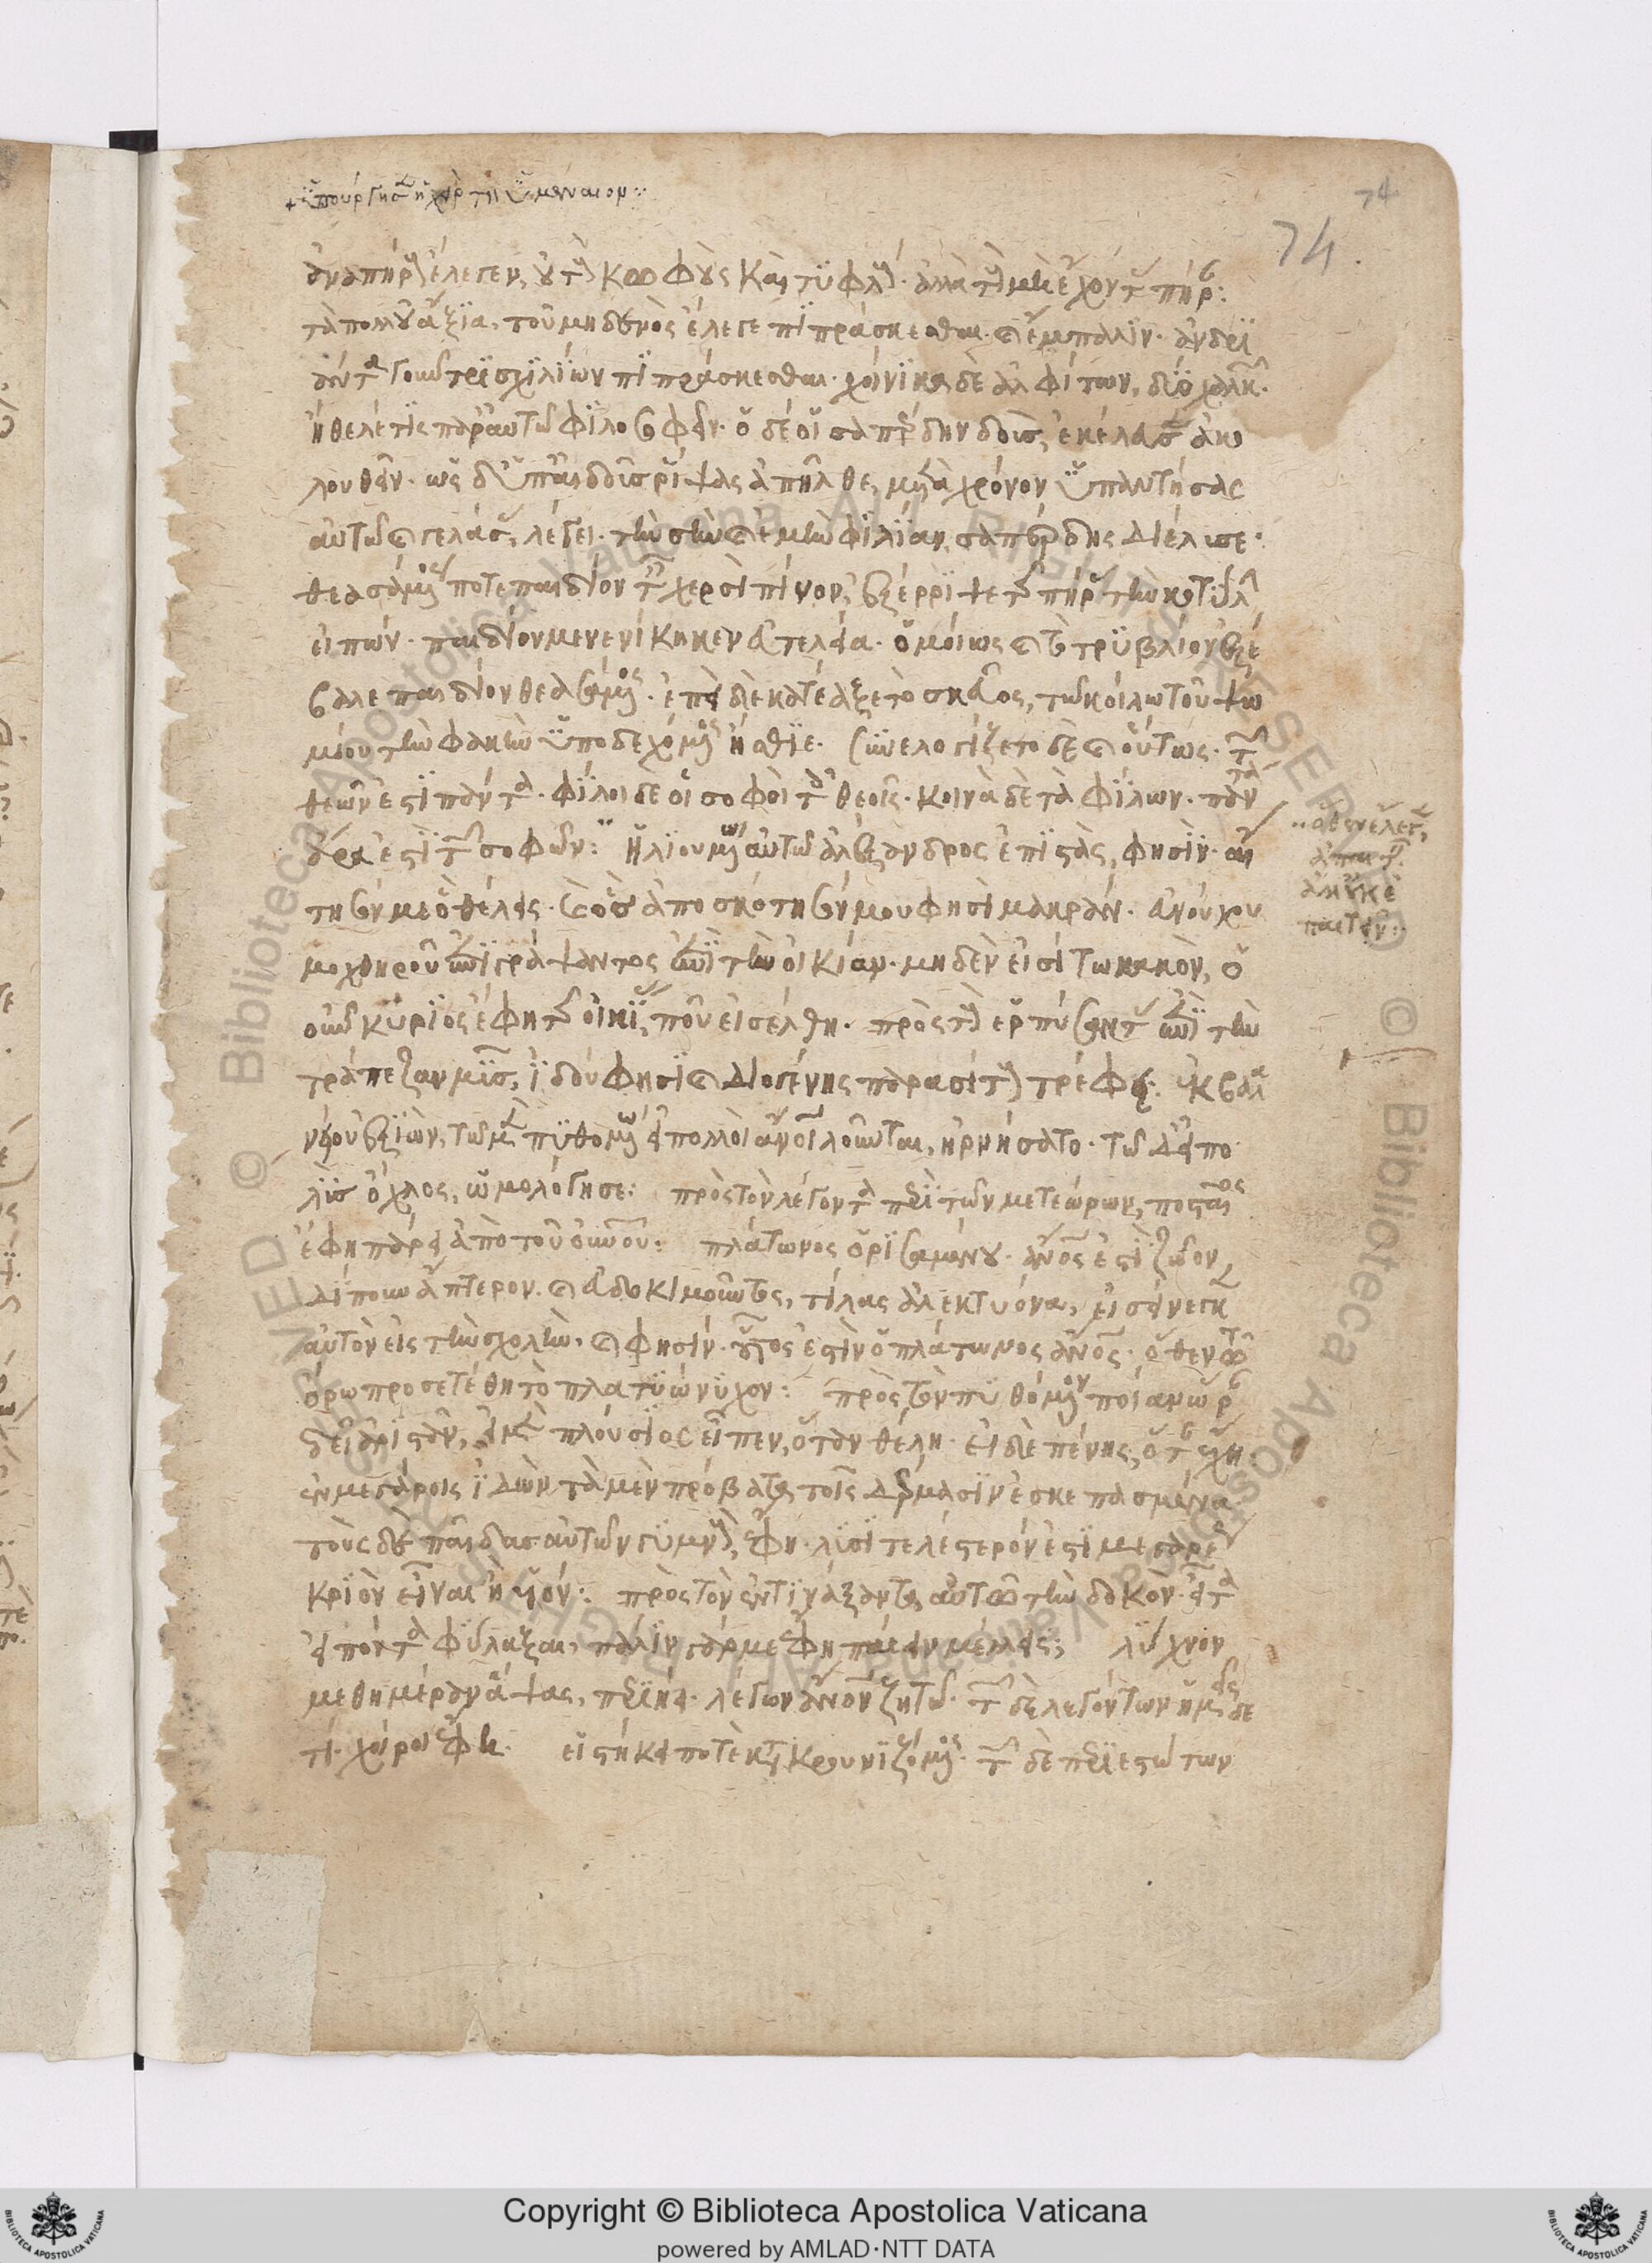 74
74.
ἀναπήρους ἔλεγεν, οὐ τοὺς κωφοὺς καὶ τυφλούς· ἀλλὰ τοὺς μὴ ἔχοντας πήραν:
τὰ πολλοῦ ἄξια, τοῦ μηδενὸς ἔλεγε πιπράσκεσθαι· καὶ ἔμπαλιν· ἀνδρι
άντα γοῦν τρισχιλίων πιπράσκεσθαι· χοίνικα δὲ ἀλφίτων, δύο χαλκ
ἤθελέ τις παρ' αὐτῷ φιλοσοφεῖν· ὁ δέ οἱ σαπέρδην δοὺς, ἐκέλευσεν ἀκο
λουθεῖν· ὡς δ' ὑπ' αἰδοῦς ῥίψας ἀπῆλθε, μετὰ χρόνον ὑπαντήσας
αὐτῷ καὶ γελάσας, λέγει· τὴν σὴν καὶ ἐμὴν φιλίαν, σαπέρδης διέλυσε·
θεασάμενος ποτὲ παιδίον ταῖς χερσὶ πίνον, ἐξέρριψε τῆς πήρας τὴν κοτύλην
εἰπών· παιδίον με νενίκηκεν εὐτελείᾳ· ὁμοίως καὶ τὸ τρυβλίον ἐξέ
βαλε παιδίον θεασάμενος· ἐπεὶ δὲ κατέαξε τὸ σκεῦος, τῷ κοίλῳ τοῦ ψω
μίου τὴν φακῆν ὑποδεχόμενος ἤσθιε· συνελογίζετο δὲ καὶ οὕτως· τῶν
θεῶν ἐστὶ πάντα· φίλοι δὲ οἱ σοφοὶ τοῖς θεοῖς· κοινὰ δὲ τὰ φίλων· πάντα
ἄρα ἐστὶ τῶν σοφῶν: ἡλιουμένῳ αὐτῷ ἀλέξανδρος ἐπιστὰς, φησίν· αἴ
τησόν με ὃ θέλεις· καὶ ὃς ἀποσκότησόν μου φησὶ μακράν· εὐνούχου
μοχθηροῦ ἐπιγράψαντος ἐπὶ τὴν οἰκίαν· μηδὲν εἰσίτω κακὸν, ὁ
οὖν κύριος ἔφη τῆς οἰκίας, ποῦ εἰσέλθη· πρὸς τοὺς ἑρπύσαντας ἐπὶ τὴν
τράπεζαν μῦς, ἰδού φησι καὶ διογένης παρασίτους τρέφει: ἐκ βαλα
νείου ἐξιὼν, τῷ μὲν πυθομένῳ εἰ πολλοὶ ἄνθρωποι λοῦνται, ἠρνήσατο· τῷ δ' εἰ πο
λὺς ὄχλος, ὡμολόγησε: πρὸς τὸν λέγοντα περὶ τῶν μετεώρων, ποσταῖος
ἔφη πάρει ἀπὸ τοῦ οὐρανοῦ: πλάτωνος ὁρισαμένου· ἄνθρωπός ἐστι ζῷον
δίπουν ἄπτερον· καὶ εὐδοκιμοῦντος, τίλας ἀλεκτρυόνα, εἰσήνεγκεν
αὐτὸν εἰς τὴν σχολὴν, καὶ φησίν· οὗτός ἐστιν ὁ πλάτωνος ἄνθρωπος· ὅθεν τῷ
ὅρῳ προσετέθη τὸ πλατυώνυχον: πρὸς τὸν πυθόμενον ποίαν ὥραν
δεῖ ἀριστᾶν, εἰ μὲν πλούσιος εἶπεν, ὅταν θέλῃ· εἰ δὲ πένης, ὅταν ἔχῃ·
ἐν μεγάροις ἰδὼν τὰ μὲν πρόβατα τοῖς δέρμασιν ἐσκεπασμένα
τοὺς δὲ παῖδας αὐτῶν γυμνούς, ἔφη· λυσιτελέστερόν ἐστι μεγαρέως
κριὸν εἶναι ἢ υἱόν: πρὸς τὸν ἐντινάξαντα αὐτῷ τὴν δοκὸν· εἶτα
εἰπόντα φύλαξαι, πάλιν γάρ με ἔφη παίειν μέλλεις; λύχνον
μεθημέραν ἅψας, περιῄει λέγων ἄνθρωπον ζητῶ·
εἱστήκει ποτὲ κατακρουνιζόμενος· τῶν δὲ περιεστώτων